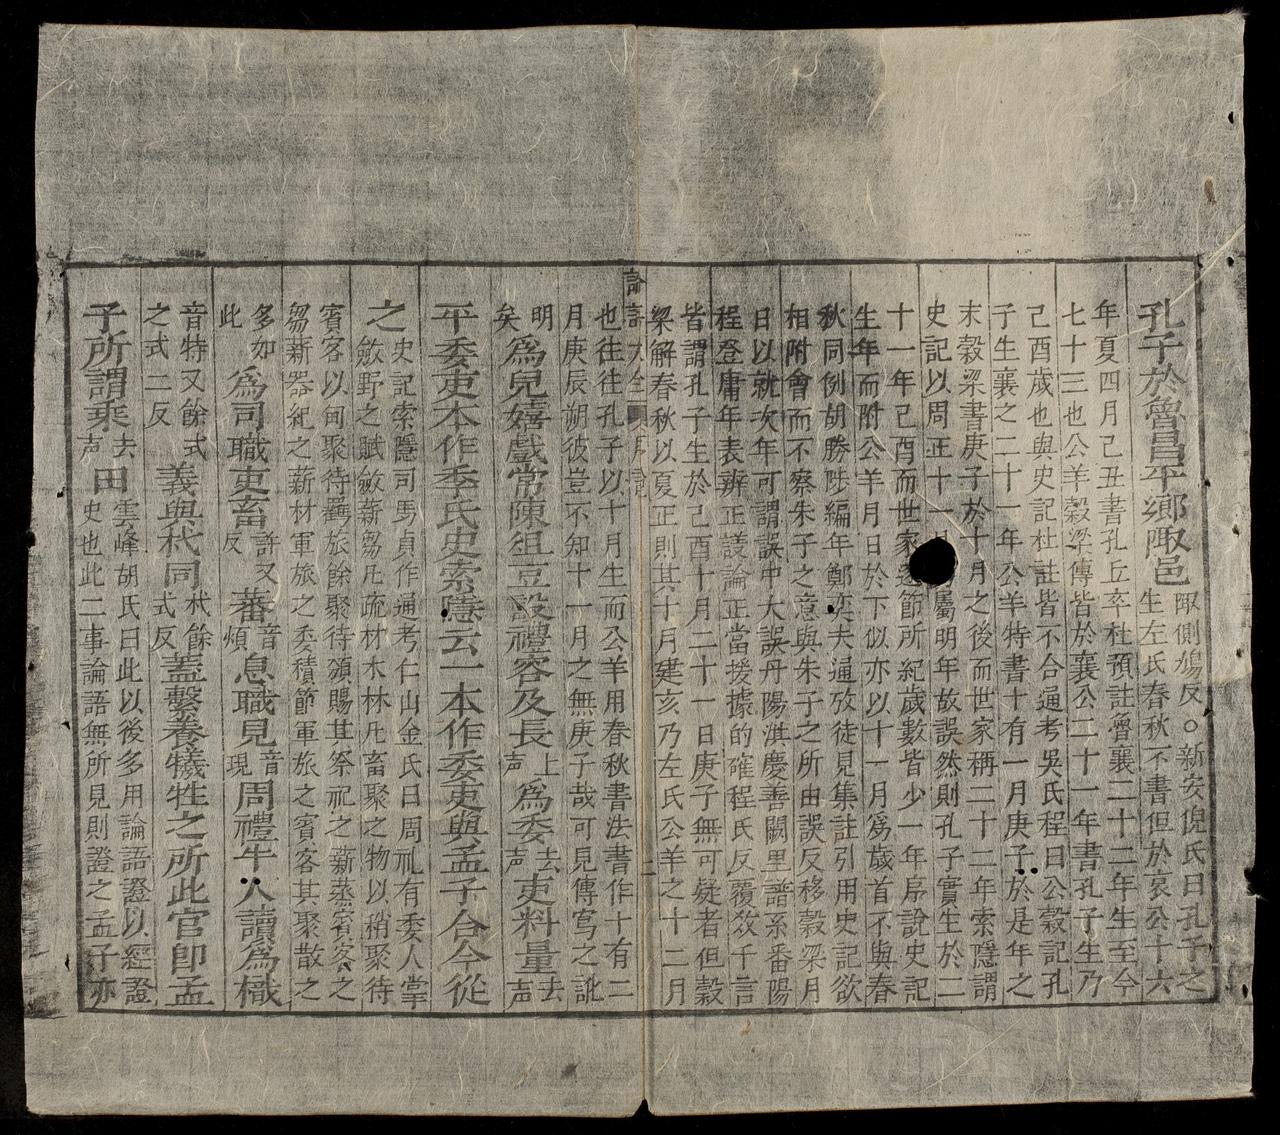 孔子於魯昌平鄉陬邑
陬側鳩反○新安倪氏曰孔子之
生左氏春秋不書但於哀公十六
年夏四月己丑書孔丘卒杜預註魯襄二十二年生至今
七十三也公羊穀梁傳皆於襄公二十一年書孔子生乃
己酉歲也與史記杜註皆不合通考吳氏程曰公穀記孔
子生襄之二十一年公羊特書十有一月庚子於是年之
末穀梁書庚子於十月之後而世家稱二十二年索隱謂
史記以周正十一屬明年故誤然則孔子實生於二
十一年己酉而世家節所紀歲數皆少一年序說史記
生年而附公羊月日於下似亦以十一月爲歲首不與春
秋同例胡勝陟編年鄭奕夫通攷徒見集註引用史記欲
相附會而不察朱子之意與朱子之所由誤反移穀梁月
日以就次年可謂誤中大誤丹陽洪慶善闕里譜系番陽
程登庸年表辨正議論正當援據的確程氏反覆攷千言
皆謂孔子生於己酉十月二十一日庚子無可疑者但穀
梁解春秋以夏正則其十月建亥乃左氏公羊之十二月
論語大全 序說 二
也往往孔子以十月生而公羊用春秋書法書作十有二
月庚辰朔彼豈不知十一月之無庚子哉可見傳寫之訛
明矣爲兒嬉戲常陳俎豆設禮容及長上声爲委去声吏料量去声
平委吏本作季氏史索隱云一本作委吏與孟子合今從
之
史記索隱司馬貞作通考仁山金氏曰周礼有委人掌
斂野之賦斂薪芻凡疏材木林凡畜聚之物以稍聚待
賓客以甸聚待羇旅餘聚待頒賜其祭祀之薪蒸賓客之
芻薪器紀之薪材軍旅之委積節軍旅之賓客其聚散之
多如此爲司職吏畜許又反蕃音煩息職見音現周禮牛人讀爲樴
音特又餘式之式二反義與杙同杙餘式反蓋繫養犧牲之所此官即孟
子所謂乘去声田
雲峰胡氏曰此以後多用論語證以經證
史也此二事論語無所見則證之孟子亦